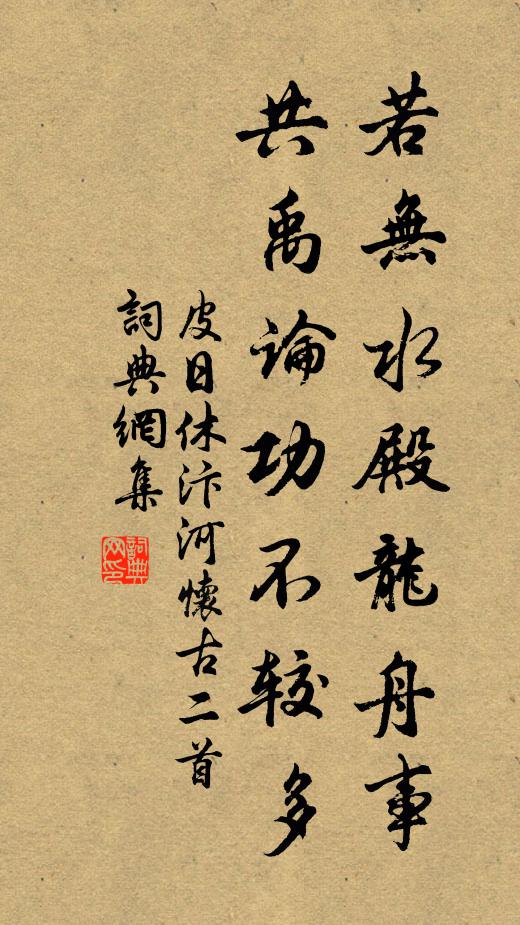 若無水殿龍舟事
共禹論功不較多
皮日休汴河懷古二首
詞典網集
詞典网印